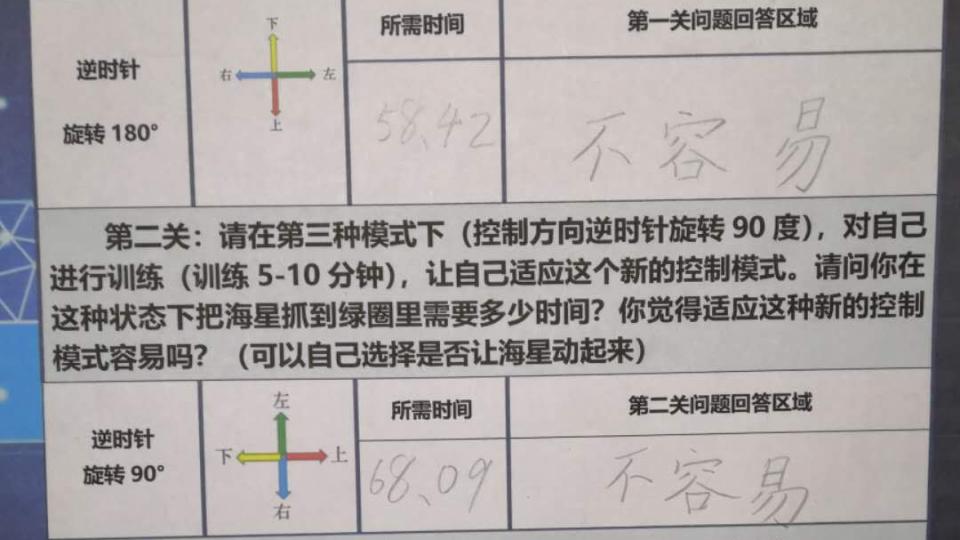 所需时间
第一关问题回答区域
逆时针
旋转 180°
下
右
左
上
58、42
不容易
第二关：请在第三种模式下（控制方向逆时针旋转 90 度），对自己
进行训练（训练 5-10 分钟），让自己适应这个新的控制模式。请问你在
这种状态下把海星抓到绿圈里需要多少时间？你觉得适应这种新的控制
模式容易吗？（可以自己选择是否让海星动起来）
逆时针
旋转 90°
左
下
上
右
所需时间
第二关问题回答区域
68、09
不容易